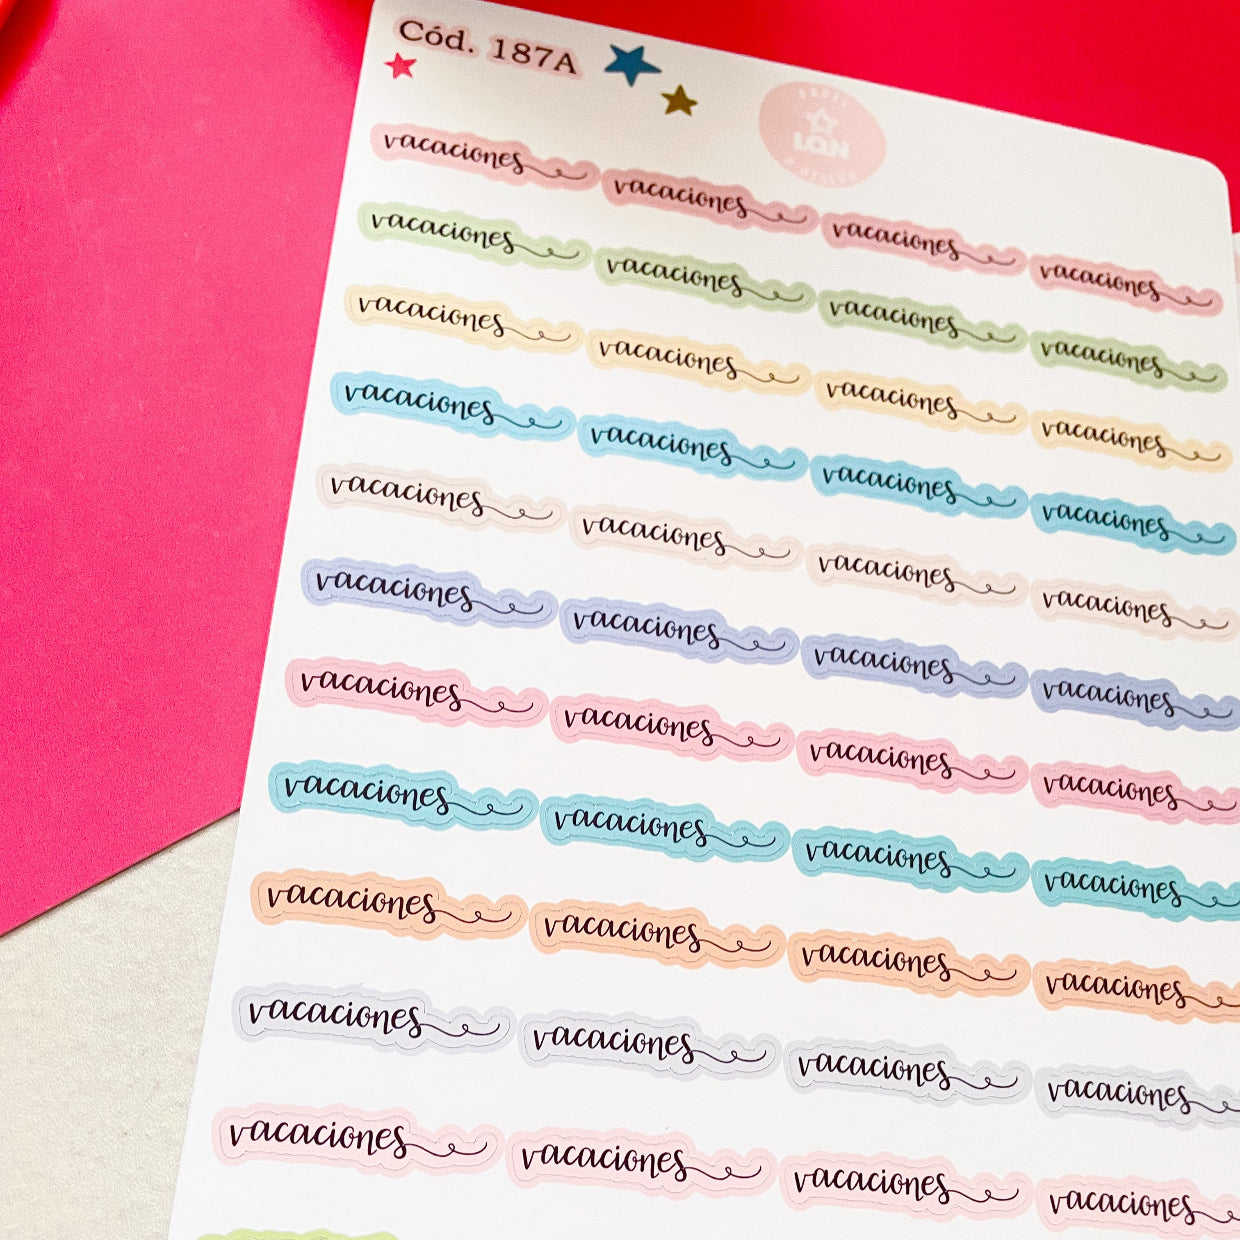 Cód. 187A
LQN
vacaciones vacaciones vacaciones vacaciones
vacaciones vacaciones vacaciones vacaciones
vacaciones vacaciones vacaciones vacaciones
vacaciones vacaciones vacaciones vacaciones
vacaciones vacaciones vacaciones vacaciones
vacaciones vacaciones vacaciones vacaciones
vacaciones vacaciones vacaciones vacaciones
vacaciones vacaciones vacaciones vacaciones
vacaciones vacaciones vacaciones vacaciones
vacaciones vacaciones vacaciones vacaciones
vacaciones vacaciones vacaciones vacaciones